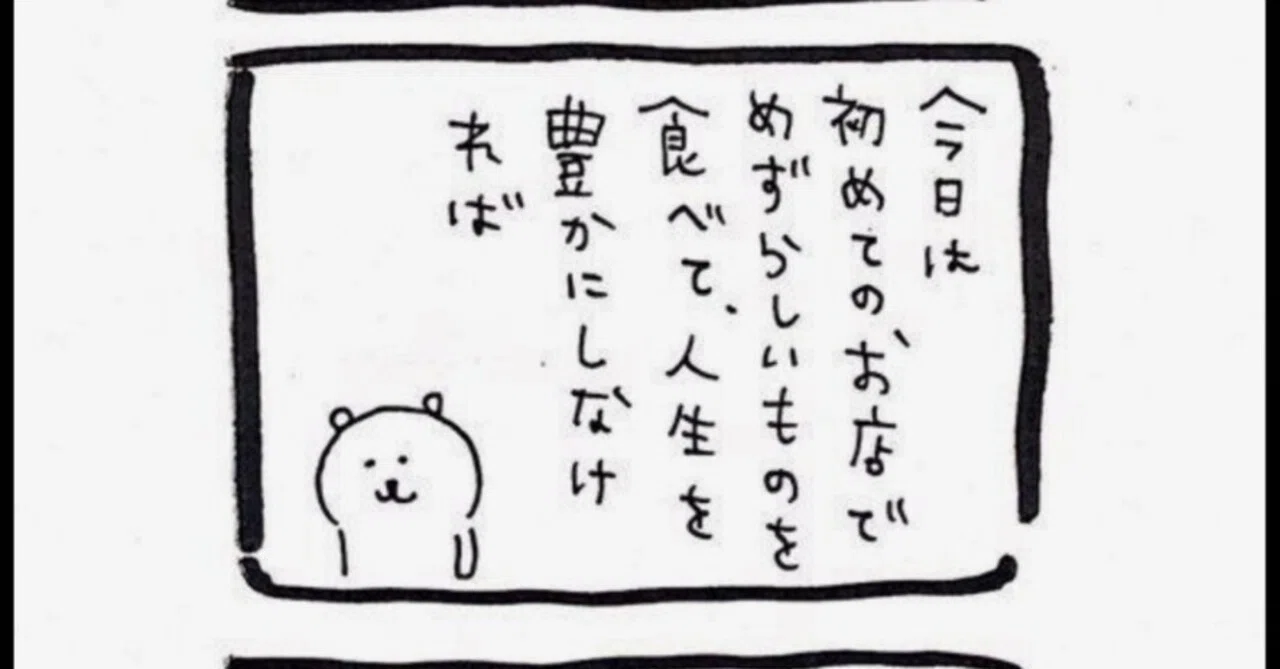 今日は
初めてのお店で
めずらしいものを
食べて、人生を
豊かにしなけ
れば